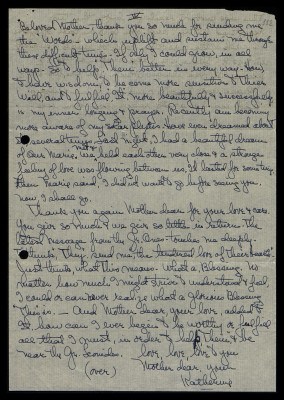 IV
Beloved Mother, thank you so much for sending me
the Words – which uplift and sustain me through
these difficult times. If only I could grow, in all
ways – so to help Them better in every way. How
to have wisdom, to become more sensitive to Their
Will, and to fulfill It more beautifully & successfully
is my inner longing & prayer. Recently am becoming
more aware of my sister. Have even dreamed about
several times. Last night, I had a beautiful dream
of our Marie. We held each other very close & a strange
feeling of love was flowing between us. It lasted for some time,
then Marie said, I did not want to go before seeing you.
now, I shall go.
Thank you again Mother dear for your love & care.
You give so much & we give so little in return. The
latest message from the Gr. Ones touches me deeply.
I think, They send me the tenderest love of Their hearts.
Just think what this means. What a Blessing. No
matter how much I might strive to understand & feel,
I could or can never realize what a glorious Blessing
This is. – And Mother dear, your love added to
It, how can I ever begin to be worthy or fulfill
all that I must, in order to help Them & be
near the Gr.
love, love & love to you
Mother dear, your
(over) Katherine